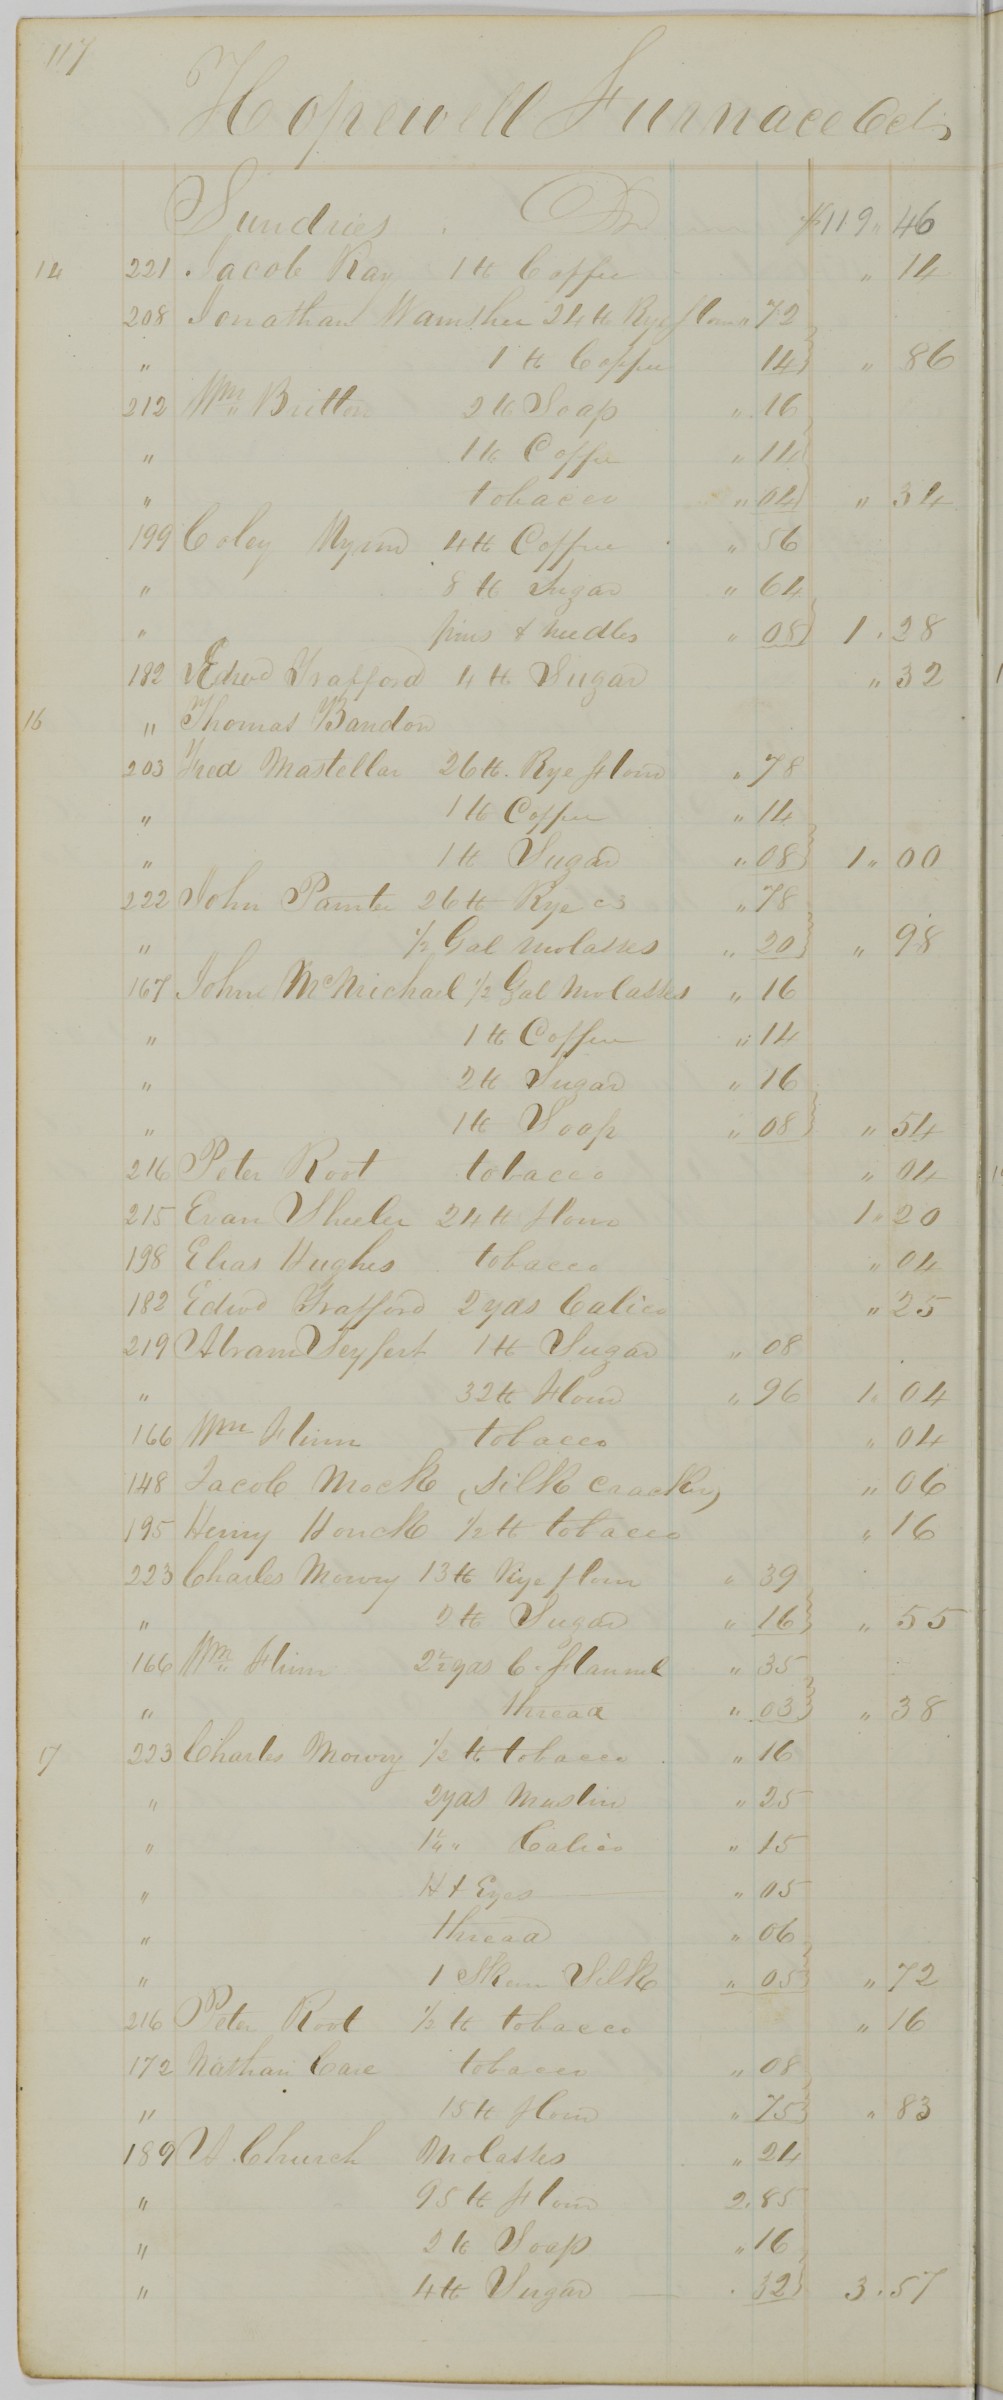 117
Hopewell Furnace Oct
Sundries Dr $119 " 46
14 221 Jacob Kay 1 lb Coffee " 14
208 Jonathan Wamsher 24 lb Rye flour " 72
" 1 lb Coffee 14 " 86
212 Wm Britton 2 lb Soap " 16
" 1 lb Coffee " 14
" tobacco " 04 " 34
199 Coley 4 lb Coffee " 56
" 8 lb Sugar " 64
" pins & needles " 08 1 . 28
182 Edwd Trafford 4 lb Sugar " 32
16 " Thomas Bandon
203 Fred Mastellar 26 lb. Rye flour " 78
" 1 lb Coffee " 14
" 1 lb Sugar " 08 1 " 00
222 John Painter 26 lb Rye " 78
" 1/2 Gal Molasses " 20 " 98
167 John McMichael 1/2 Gal Molasses " 16
" 1 lb Coffee " 14
" 2 lb Sugar " 16
" 1 lb Soap " 08 " 54
216 Peter Root tobacco " 04
215 Evan Sheeler 24 lb flour 1 " 20
198 Elias Hughes tobacco " 04
182 Edwd Trafford 2 yds Calico " 25
219 Abram Seyfert 1 lb Sugar " 08
" 32 lb Flour " 96 1 " 04
166 Wm Flinn tobacco " 04
148 Jacob Mock (silk cracker) " 06
195 Henry Houck 1/2 lb tobacco " 16
223 Charles Mowry 13 lb Rye flour " 39
" 2 lb Sugar " 16 " 55
166 Wm Flinn 2 1/2 yds C. flannel " 35
" thread " 03 " 38
17 223 Charles Mowry 1/2 lb tobacco " 16
" 2 yds Muslin " 25
" 1 1/4 " Calico " 15
" H & Eyes " 05
" thread " 06
" 1 Skein Silk " 05 " 72
216 Peter Root 1/2 lb tobacco " 16
172 Nathan Care tobacco " 08
" 15 lb flour " 75 " 83
189 A. Church Molasses " 24
" 95 lb flour 2.85
" 2 lb Soap " 16
" 4 lb Sugar . 32 3 . 57